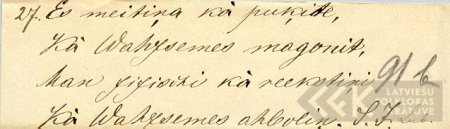 27. Es meitiņa kà puķite,
Kà Wahzsemes magonit;
Man zizisiņi kà reeksti 91 b
Kà Wahzsemes ahbolin. S.
LATVIEŠU
FOLKLORAS
KRĀTUVE